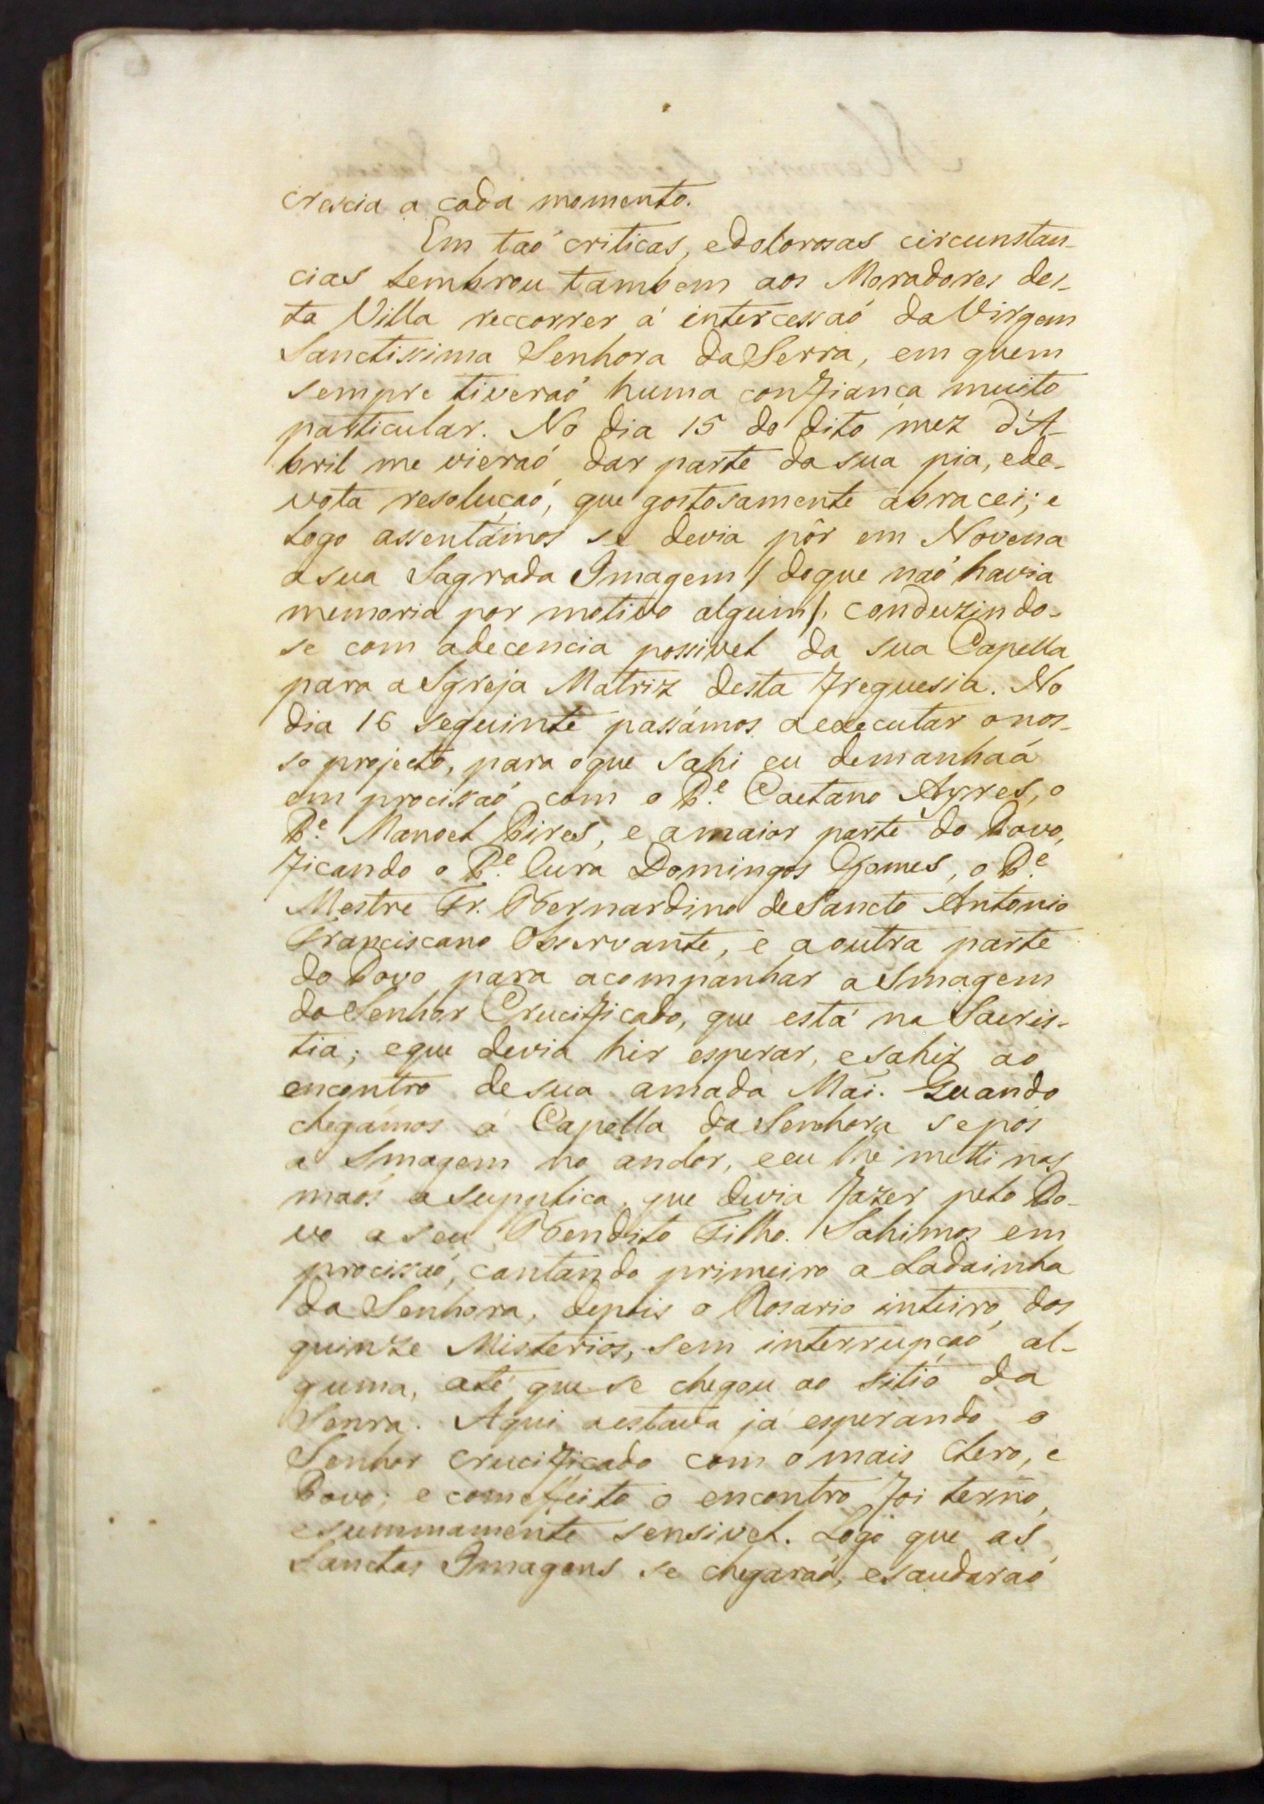 crescia a cada momento.
Em taõ criticas, e dolorosas circunstan-
cias lembrou tambem aos Moradores des-
ta Villa reccorrer á intercessaõ da Virgem
Sanctissima Senhora da Serra, em quem
sempre tiveraõ huma confiança muito
particular. No dia 15 do dito mez d'A-
bril me vieraõ dar parte da sua pia, e de-
vota resoluçaõ, que gostosamente abracei; e
logo assentámos se devia pôr em Novena
a sua Sagrada Imagem / do que naõ havia
memoria por motivo algum /, conduzindo-
se com a decencia possivel da sua Capella
para a Igreja Matriz desta freguesia. No
dia 16 seguinte passámos a executar o nos-
so projecto, para o que sahi eu de manhaã
em procissaõ com o P.e Caetano Ayres, o
P.e Manoel Pires, e a maior parte do Povo,
ficando o P.e Cura Domingos Gomes, o P.e
Mestre Fr. Bernardino de Sancto Antonio
Franciscano Observante, e a outra parte
do Povo para acompanhar a Imagem
do Senhor Crucificado, que está na Sacris-
tia; e que devia hir esperar, e sahir ao
encontro de sua amada Mai. Quando
chegámos á Capella da Senhora se pôs
a Imagem no andor, e eu lhe metti nas
maõs a supplica, que devia fazer pelo Po-
vo a seu Bendito Filho. Sahimos em
procissaõ, cantando primeiro a Ladainha
da Senhora, depois o Rosario inteiro dos
quinze Misterios, sem interrupçaõ al-
guma, até que se chegou ao sitio da
Senra. Aqui a estava já esperando o
Senhor crucificado com o mais Clero, e
Povo; e com effeito o encontro foi terno,
e summamente sensivel. Logo que as
Sanctas Imagens se chegaraõ, e saudaraõ